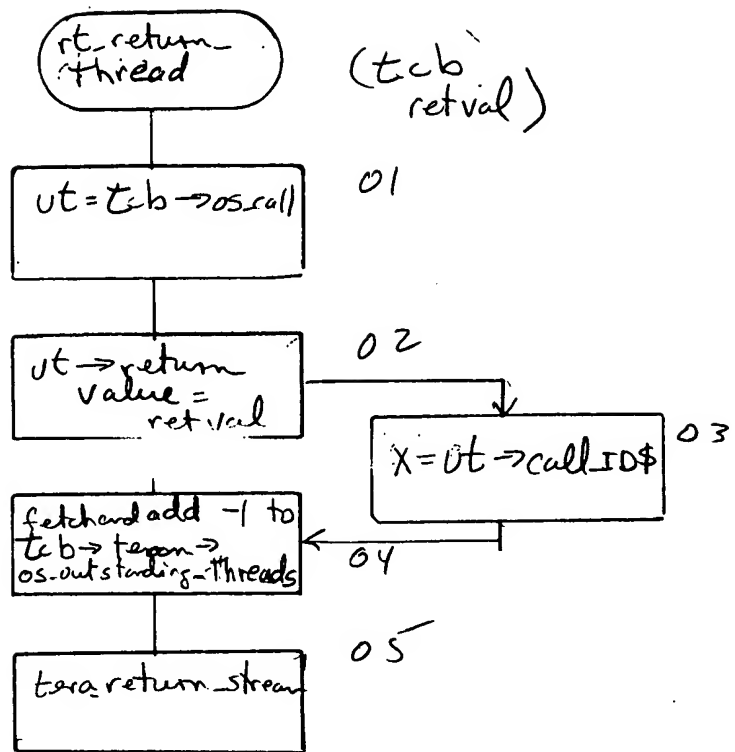 rt_return_
thread
(tcb
retval)
ut = tcb → os_call
01
ut → return
value =
retval
02
x = ut → call_ID$
03
fetch and add -1 to
tcb → team →
os_outstanding_threads
04
tera_return_stream
05